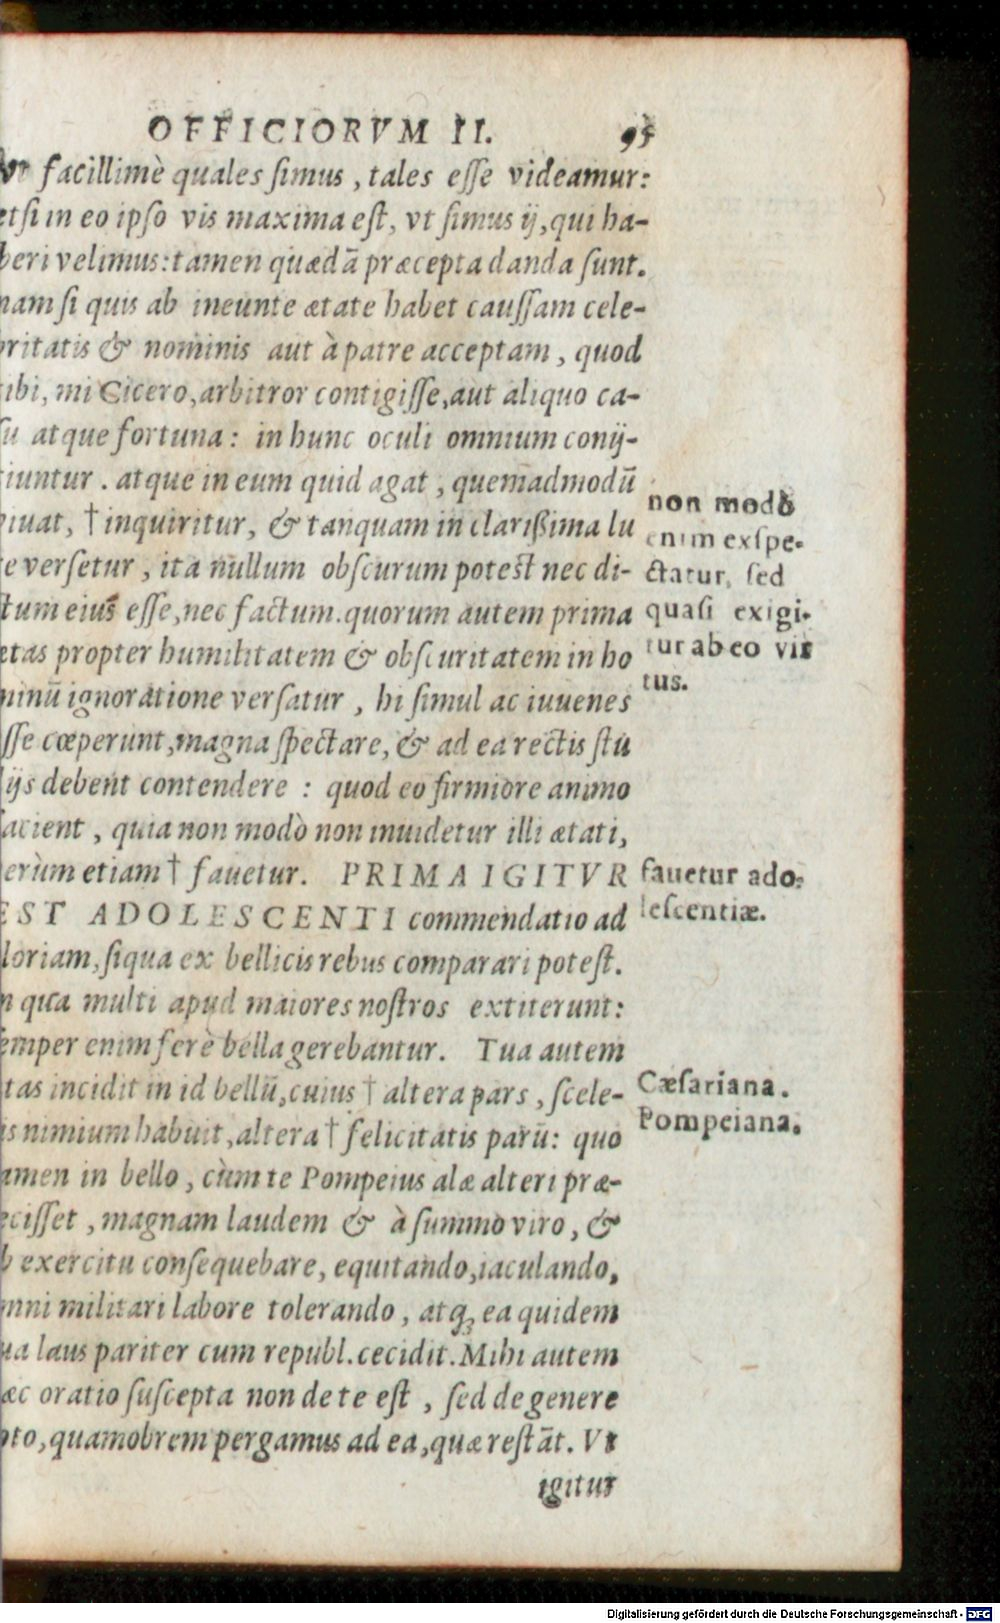 OFFICIORVM II. 95
Vt facillimè quales ſimus, tales eſſe videamur:
etſi in eo ipſo vis maxima eſt, vt ſimus ij, qui ha-
beri velimus: tamen quædā præcepta danda ſunt.
nam ſi quis ab ineunte ætate habet cauſſam cele-
britatis & nominis aut à patre acceptam, quod
tibi, mi Cicero, arbitror contigiſſe, aut aliquo ca-
ſu atque fortuna: in hunc oculi omnium conij-
ciuntur. atque in eum quid agat, quemadmodū
viuat, † inquiritur, & tanquam in clarißima lu
ce verſetur, ita nullum obſcurum poteſt nec di-
ctum eius eſſe, nec factum. quorum autem prima
ætas propter humilitatem & obſcuritatem in ho
minū ignoratione verſatur, hi ſimul ac iuuenes
eſſe cœperunt, magna ſpectare, & ad ea rectis ſtu
dijs debent contendere: quod eo firmiore animo
facient, quia non modò non inuidetur illi ætati,
verùm etiam † fauetur. PRIMA IGITVR
EST ADOLESCENTI commendatio ad
gloriam, ſiqua ex bellicis rebus comparari poteſt.
in qua multi apud maiores noſtros extiterunt:
ſemper enim ferè bella gerebantur. Tua autem
ætas incidit in id bellū, cuius † altera pars, ſcele-
ris nimium habuit, altera † felicitatis parū: quo
tamen in bello, cùm te Pompeius alæ alteri præ-
feciſſet, magnam laudem & à ſummo viro, &
ab exercitu conſequebare, equitando, iaculando,
omni militari labore tolerando, atq; ea quidem
tua laus pariter cum republ. cecidit. Mihi autem
hæc oratio ſuſcepta non de te eſt, ſed de genere
toto, quamobrem pergamus ad ea, quæ reſtāt. Vt
igitur
non modò
enim exſpe-
ctatur, ſed
quaſi exigi-
tur ab eo vir
tus.
fauetur ado-
leſcentiæ.
Cæſariana.
Pompeiana.
Digitalisierung gefördert durch die Deutsche Forschungsgemeinschaft - DFG